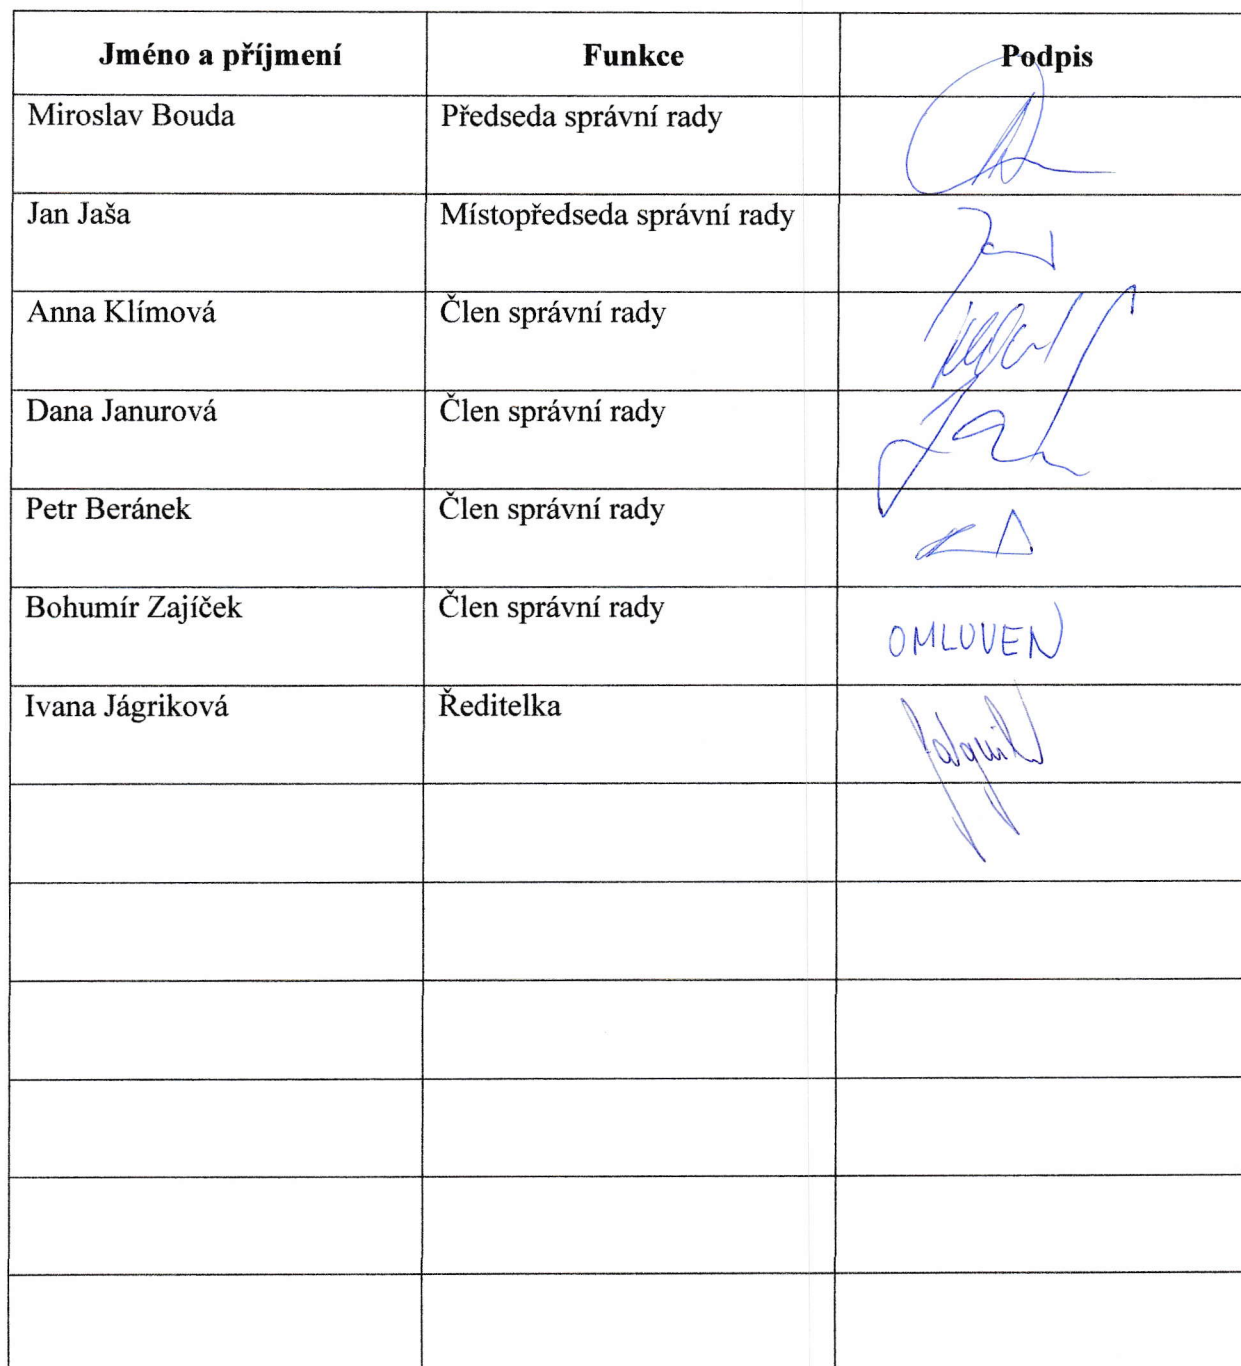 Jméno a příjmení Funkce Podpis
Miroslav Bouda Předseda správní rady
Jan Jaša Místopředseda správní rady
Anna Klímová Člen správní rady
Dana Janurová Člen správní rady
Petr Beránek Člen správní rady
Bohumír Zajíček Člen správní rady OMLUVEN
Ivana Jágriková Ředitelka